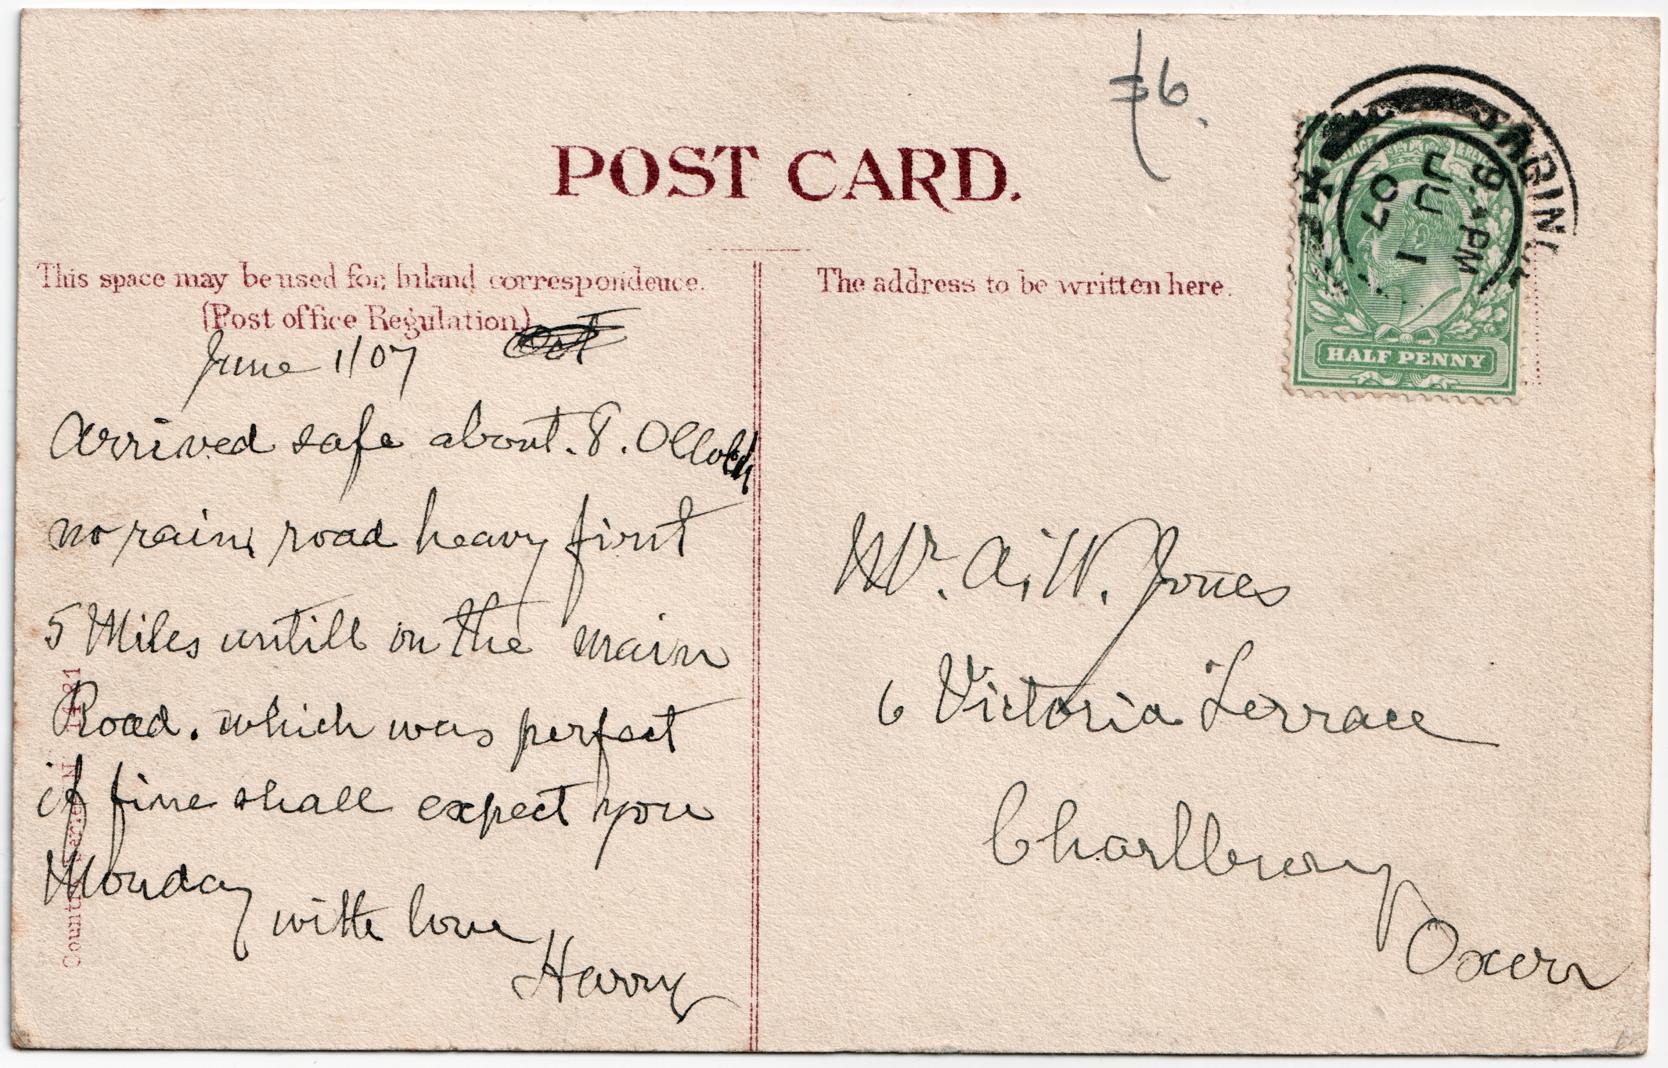 POST CARD.
£6.
This space may be used for Inland correspondence.
(Post office Regulation)
The address to be written here.
9. PM
JU 1
07
HALF PENNY
June 1/07
Arrived safe about. 8. Oclock
no rain, road heavy first
5 Miles untill on the main
Road. which was perfect
if fine shall expect you
Monday
with love
Harry
Mr. A. W. Jones
6 Victoria Terrace
Charlbury
Oxon